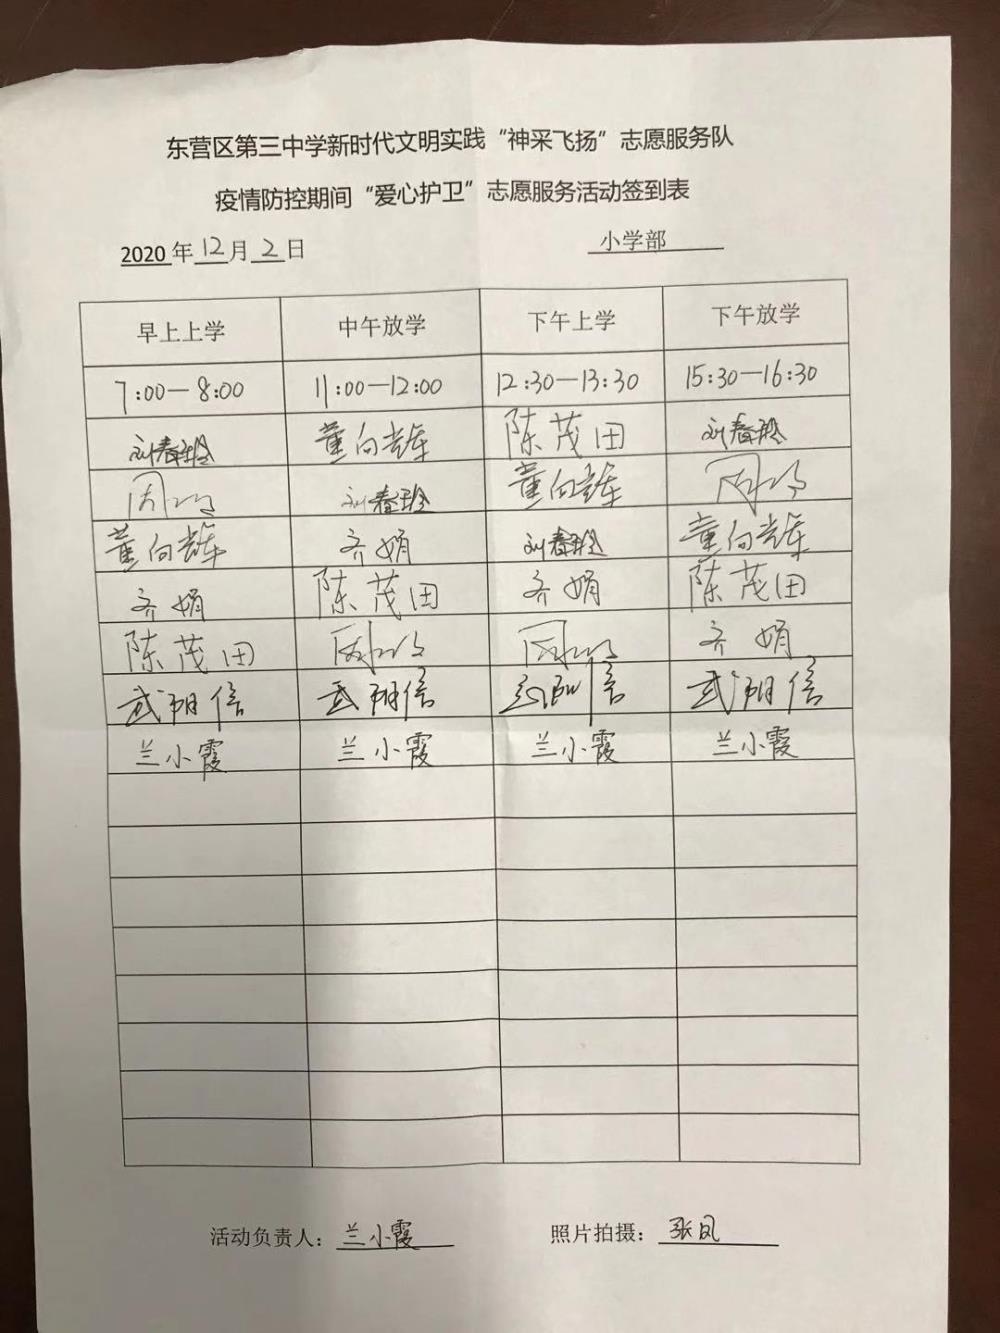 东营区第三中学新时代文明实践“神采飞扬”志愿服务队
疫情防控期间“爱心护卫”志愿服务活动签到表
2020年12月2日 小学部
早上上学 中午放学 下午上学 下午放学
7:00—8:00 11:00—12:00 12:30—13:30 15:30—16:30
刘春玲 董向辉 陈茂田 刘春玲
刘春玲 董向辉
董向辉 齐娟 刘春玲 董向辉
齐娟 陈茂田 齐娟 陈茂田
陈茂田 齐娟
武阳信 武阳信 武阳信
兰小霞 兰小霞 兰小霞 兰小霞
活动负责人：兰小霞 照片拍摄：张凤